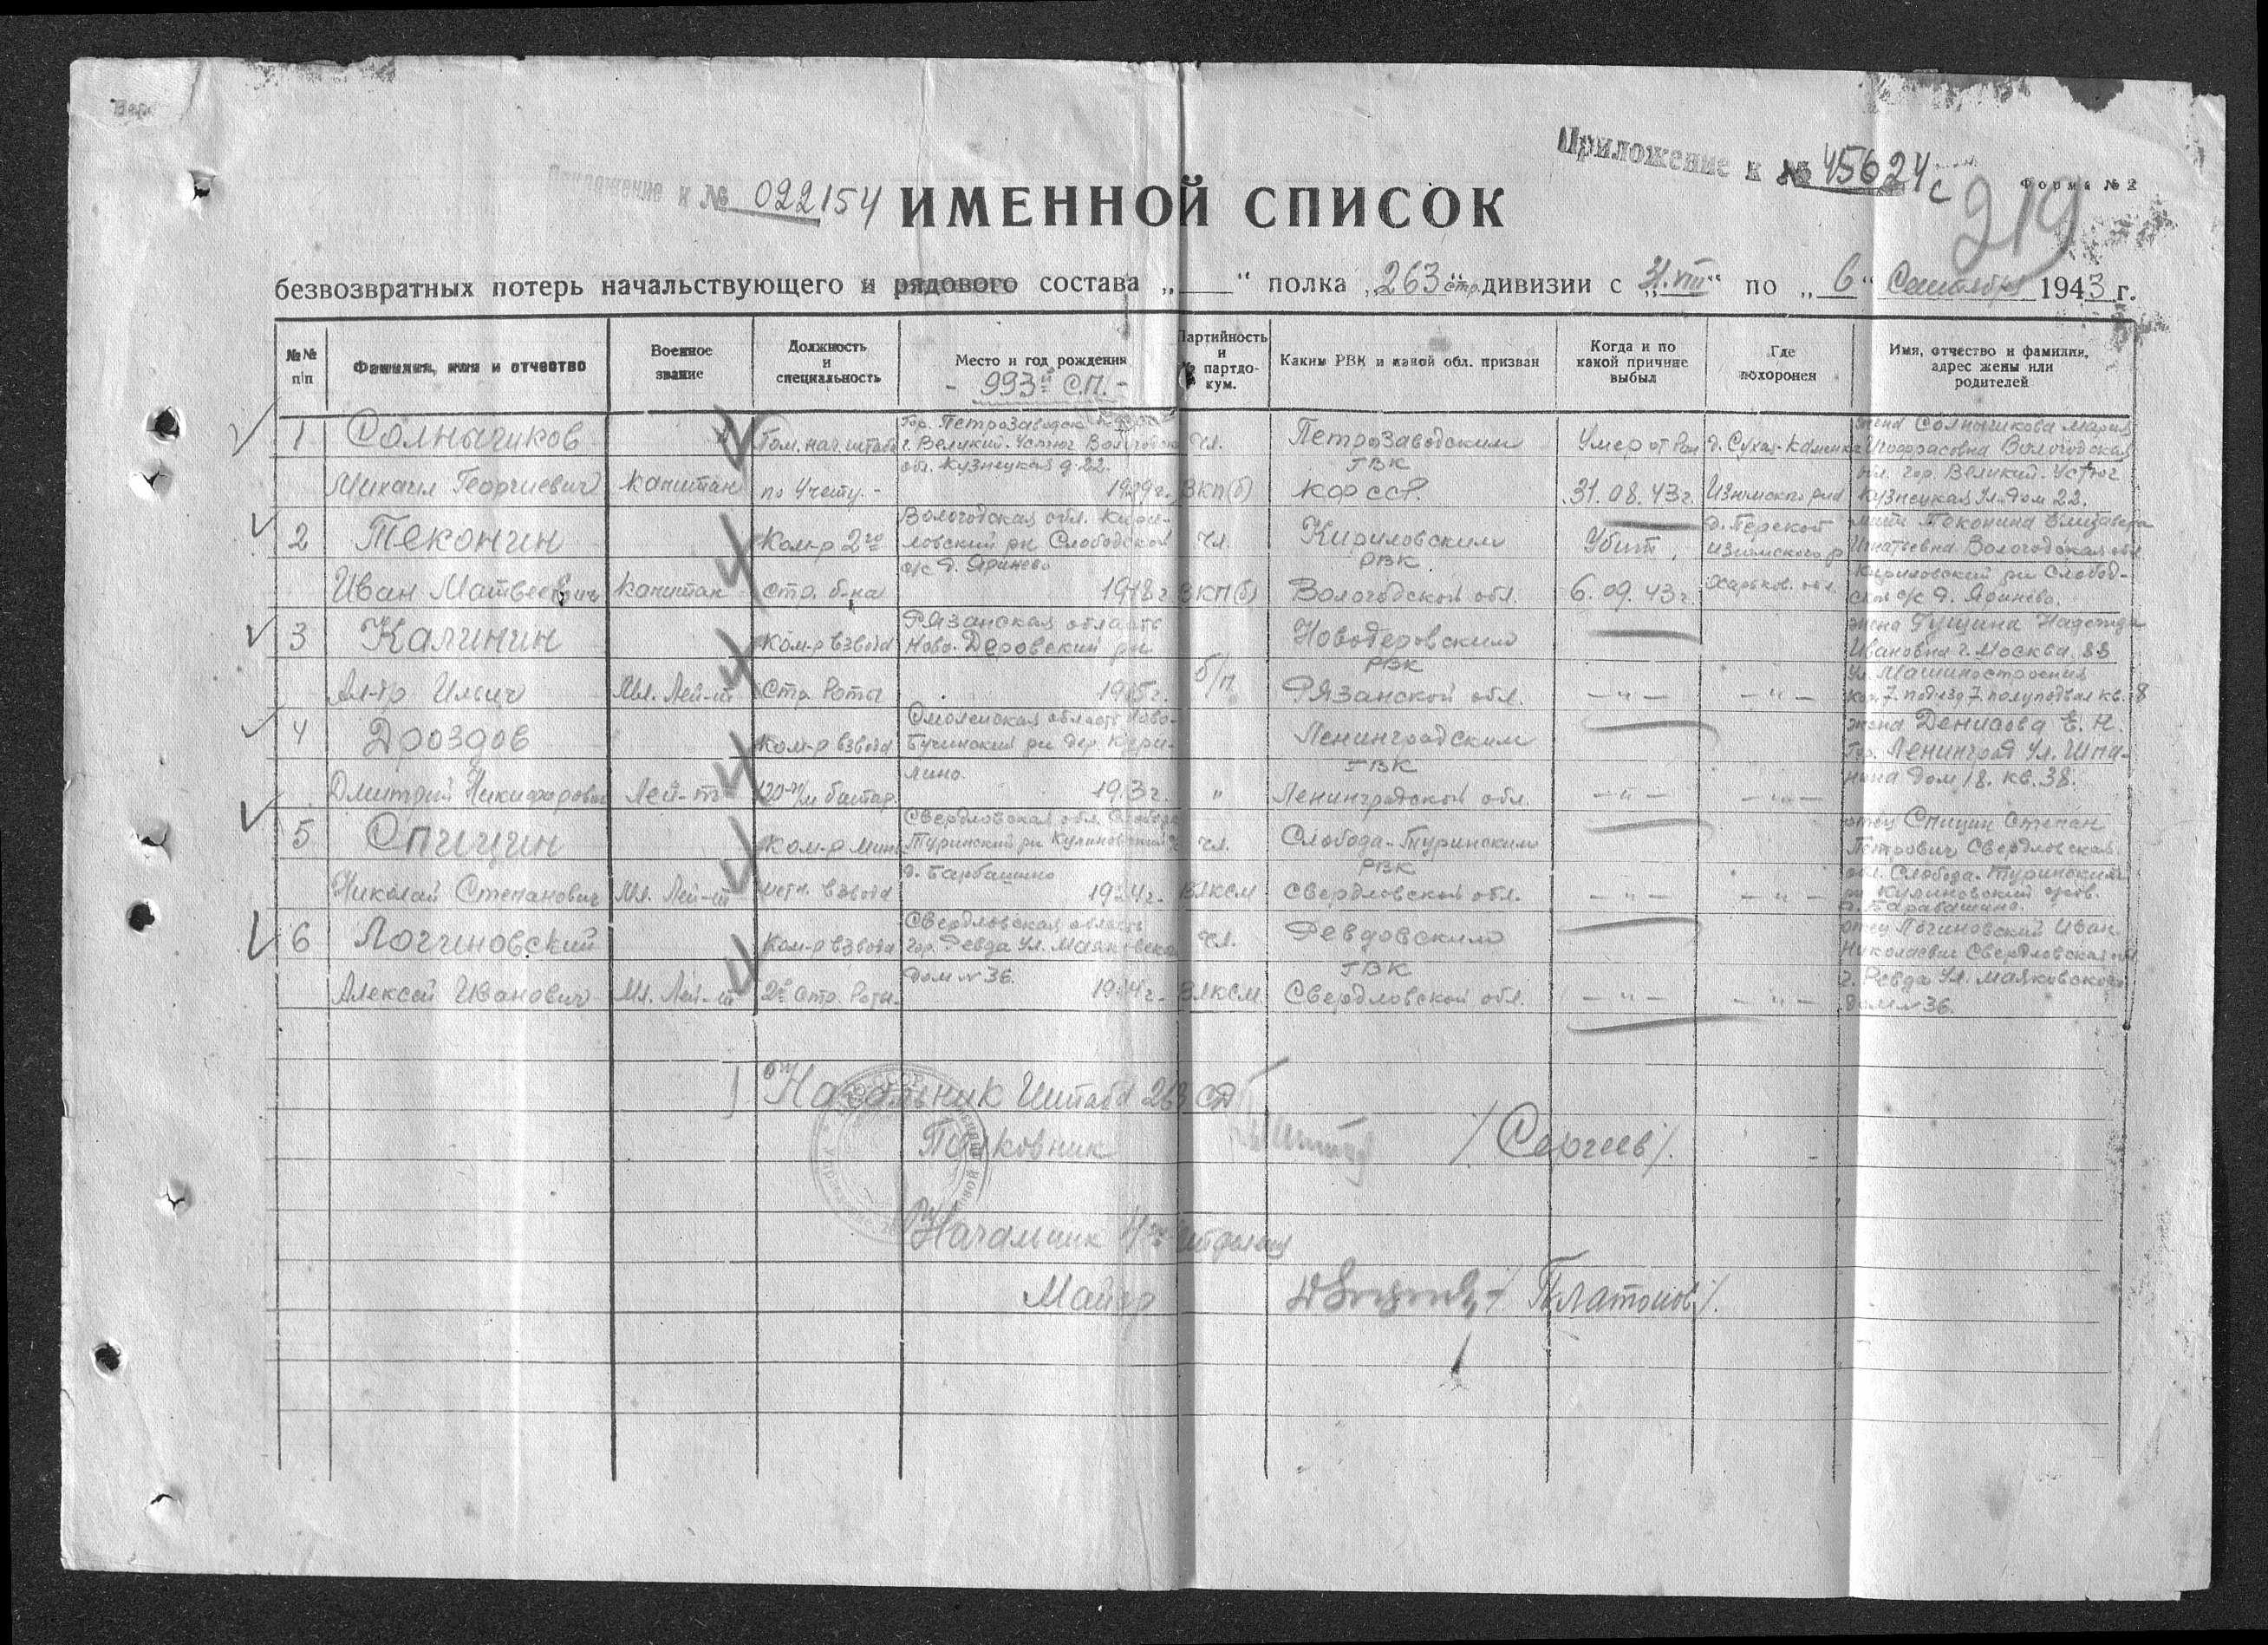 Приложение к № 45624с
Форма № 2
219
Приложение к № 022154
ИМЕННОЙ СПИСОК
безвозвратных потерь начальствующего и рядового состава „ “ полка „263 стр. дивизии с „31.VIII“ по „6“ Сентября 1943 г.
№№ п/п
Фамилия, имя и отчество
Военное звание
Должность и специальность
Место и год рождения
- 993й С.П. -
Партийность и № партдокум.
Каким РВК и какой обл. призван
Когда и по какой причине выбыл
Где похоронен
Имя, отчество и фамилия, адрес жены или родителей
1 Солнычиков
Михаил Георгиевич
капитан
Пом. нач. штаба
по учету.-
гор. Петрозаводск
г. Великий-Устюг Вологодско
обл. Кузнецкая д. 22.
чл.
ВКП(б)
Петрозаводским
ГВК
КФССР.
Умер от Ран
31.08.43г.
д. Сухая-Каменка
Изюмского р-на
жена Солнычикова Мария
Вологодская
обл. гор. Великий-Устюг
Кузнецкая ул. дом 22.
2 Теконин
Иван Матвеевич
капитан
Ком-р 2го
стр. б-на
Вологодская обл. Кири-
ловский р-н Слободской
с/с д. Яринево
1918г.
чл.
ВКП(б)
Кириловским
РВК
Вологодской обл.
Убит.
6.09.43г.
Изюмского р
Харьков. обл.
мать Теконина Елизавета
Игнатьевна Вологодская обл
Кириловский р-н Слобод-
ской с/с д. Яринево.
3 Калинин
Ал-др Ильич
Мл. Лей-т
Ком-р взвода
Стр. Роты
Рязанская область
Ново-Деровский р-н
1915г.
б/п
Новодеровским
РВК
Рязанской обл.
— " —
— " —
жена Гущина Надежда
Ивановна г. Москва 88
ул. Машиностроения
кор. 7. подъезд 7 полуподвал кв. 8
4 Дроздов
Дмитрий Никифорович
Лей-т
Ком-р взвода
120 м/м батар.
Смоленская область Ново-
д̶е̶р̶.
лино.
1913г.
"
Ленинградским
ГВК
Ленинградской обл.
— " —
— " —
жена Денисова Е. Н.
Гор. Ленинград ул.
дом 18. кв. 38.
5 Спицин
Николай Степанович
Мл. Лей-т
Ком-р мино-
метн. взвода
Свердловская обл. Слобода
Туринский р-н
1924г.
чл.
ВЛКСМ
Слобода-Туринским
РВК
Свердловской обл.
— " —
— " —
отец Спицин Степан
Петрович Свердловская
обл. Слобода-Туринский
6 Логиновский
Алексей Иванович
Мл. Лей-т
Ком-р взвода
2й стр. Роты.
Свердловская область
гор. Ревда ул. Маяковско
дом № 36.
1924г.
чл.
ВЛКСМ.
Ревдовским
ГВК
Свердловской обл.
— " —
— " —
отец Логиновский Иван
Николаевич Свердловская обл
г. Ревда ул. Маяковского
дом № 36.
Начальник Штаба 263 СД
Полковник
/Сергеев/.
Начальник 4го отделения
Майор
/Платонов/.